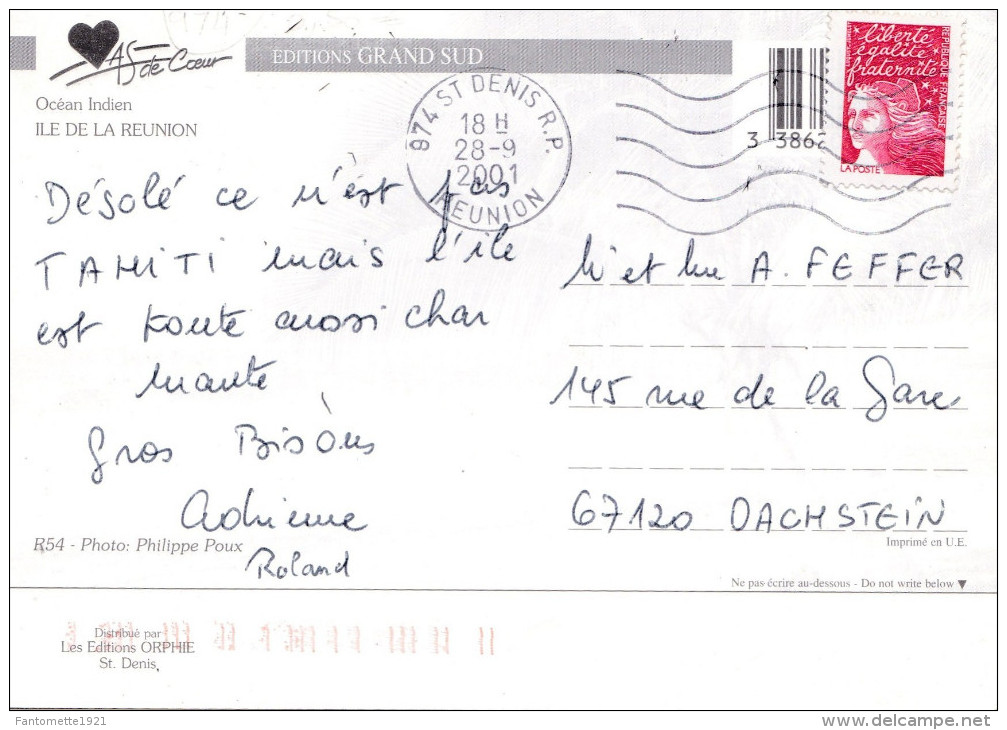 As de Coeur
EDITIONS GRAND SUD
Océan Indien
ILE DE LA REUNION
974 ST DENIS R.P.
18 H
28-9
2001
REUNION
3 3862
liberté
égalité
fraternité
REPUBLIQUE FRANÇAISE
LA POSTE
Désolé ce n'est pas
TAHITI mais l'ile
est toute aussi char
mante
Gros Bisous
Adrienne
Roland
M et Me A. FEFFER
145 rue de la Gare
67120 DACHSTEIN
R54 - Photo: Philippe Poux
Imprimé en U.E.
Ne pas écrire au-dessous - Do not write below
Distribué par
Les Editions ORPHIE
St. Denis
Fantomette1921
www.delcampe.net